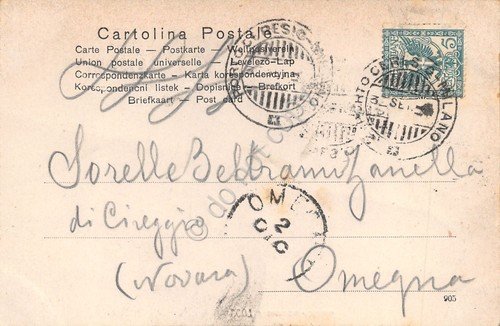 Cartolina Postale
Carte Postale - Postkarte - Weltpostverein
Union postale universelle - Levelező-Lap
Correspondenzkarte - Karta korespondencyjna
Korespondenční lístek - Dopisnice - Brefkort
Briefkaart - Post card
Sorelle Beltrami Zanella
di Cireggio
(Novara) Omegna
905